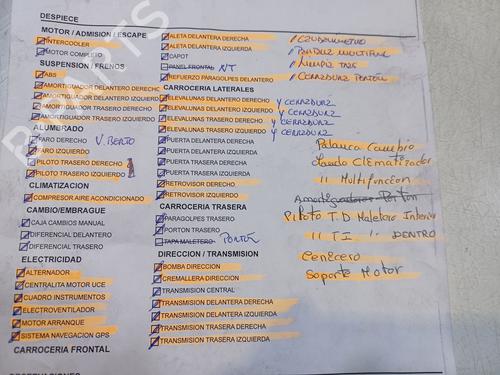 DESPIECE
MOTOR / ADMISION / ESCAPE
INTERCOOLER
MOTOR COMPLETO
SUSPENSIÓN / FRENOS
ABS
AMORTIGUADOR DELANTERO DERECHO
AMORTIGUADOR DELANTERO IZQUIERDO
AMORTIGUADOR TRASERO DERECHO
AMORTIGUADOR TRASERO IZQUIERDO
ALUMBRADO
FARO DERECHO
FARO IZQUIERDO
PILOTO TRASERO DERECHO
PILOTO TRASERO IZQUIERDO
CLIMATIZACIÓN
COMPRESOR AIRE ACONDICIONADO
CAMBIO/EMBRAGUE
CAJA CAMBIOS MANUAL
DIFERENCIAL DELANTERO
DIFERENCIAL TRASERO
ELECTRICIDAD
ALTERNADOR
CENTRALITA MOTOR UCE
CUADRO INSTRUMENTOS
ELECTROVENTILADOR
MOTOR ARRANQUE
SISTEMA NAVEGACION GPS
CARROCERIA FRONTAL
ALETA DELANTERA DERECHA
ALETA DELANTERA IZQUIERDA
CAPOT
PANEL FRONTAL NT
REFUERZO PARAGOLPES DELANTERO
CARROCERIA LATERALES
ELEVALUNAS DELANTERO DERECHO
ELEVALUNAS DELANTERO IZQUIERDO
ELEVALUNAS TRASERO DERECHO
ELEVALUNAS TRASERO IZQUIERDO
PUERTA DELANTERA DERECHA
PUERTA DELANTERA IZQUIERDA
PUERTA TRASERA DERECHA
PUERTA TRASERA IZQUIERDA
RETROVISOR DERECHO
RETROVISOR IZQUIERDO
CARROCERIA TRASERA
PARAGOLPES TRASERO
PORTON TRASERO
TAPA MALETERO PORTON
DIRECCION / TRANSMISION
BOMBA DIRECCION
CREMALLERA DIRECCION
TRANSMISION CENTRAL
TRANSMISION DELANTERA DERECHA
TRANSMISION DELANTERA IZQUIERDA
TRANSMISION TRASERA DERECHA
TRANSMISION TRASERA IZQUIERDA
Palanca Cambio
Mando Climatizador
11 Multifuncion
Amortiguadores Porton
Piloto T.D Maletero Interior
11 T I 11 DENTRO
Cenicero
Soporte Motor